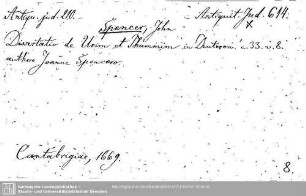 Antiqu. jud. 210. Antiquit. Jud. 614.
Spencer, John
Dissertatio de Urim et Thummim in Deuteron. c. 33. v. 8.
authore Joanne Spencero.
Cantabrigiae, 1669.
8.
Sächsische Landesbibliothek -
Staats- und Universitätsbibliothek Dresden